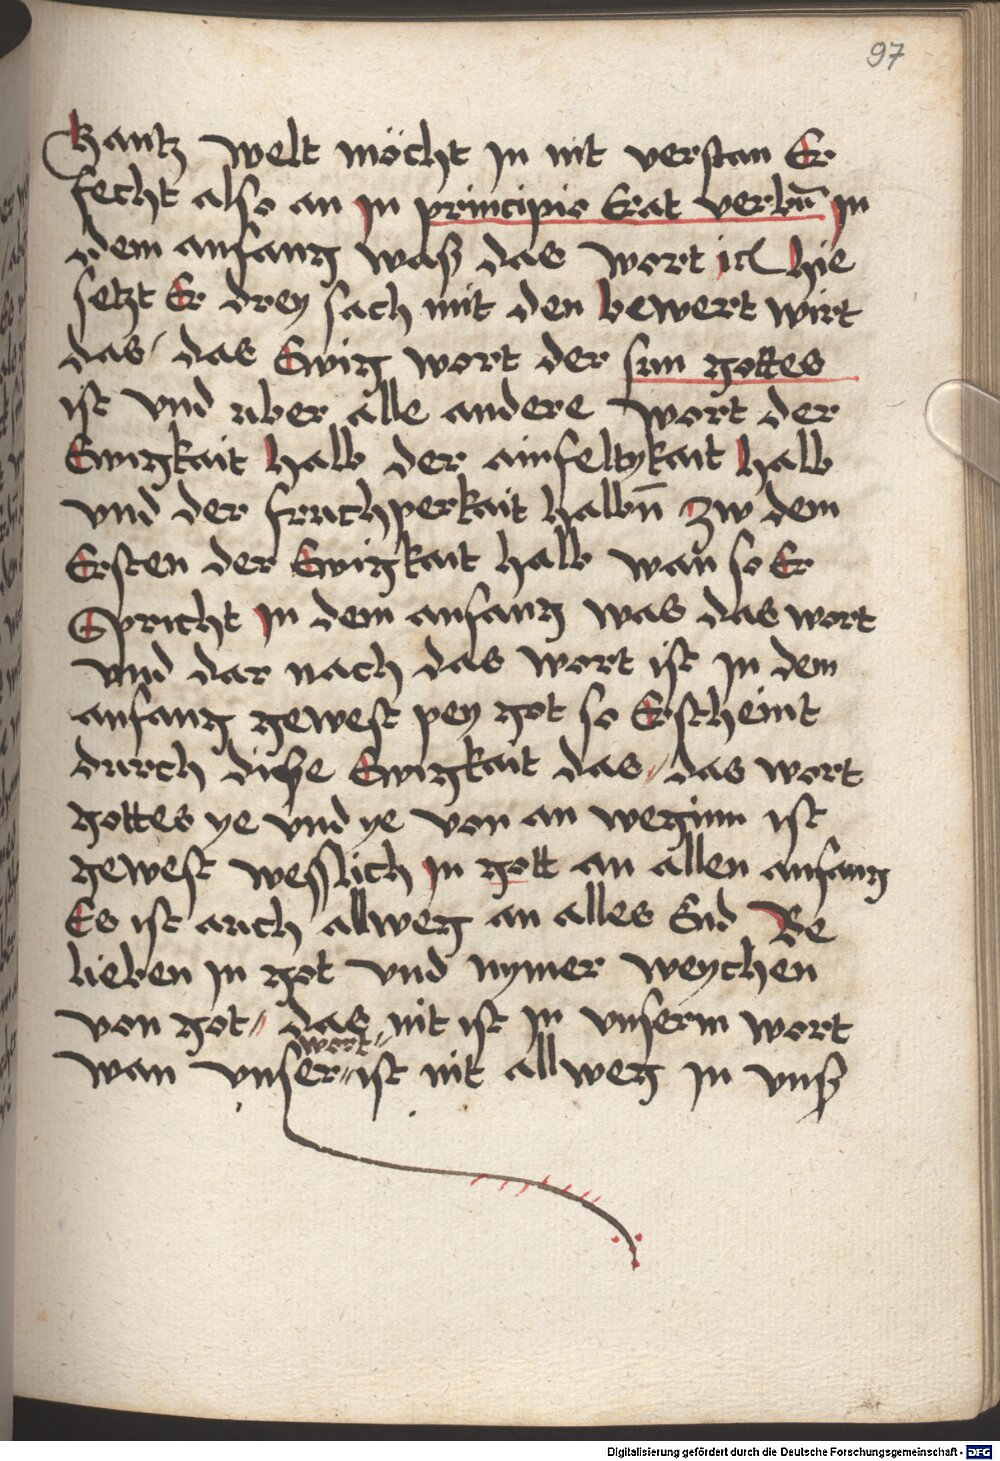 97
gantz welt möcht in nit verstan Er
fecht also an in principio Erat verbū in
dem anfang waß das wort ist hie
setzt Er drey sach mit den bewert wirt
das / das Ewig wort der sun gottes
ist vnd uber alle andere wort der
Ewigkait halb der ainfeltykait halb
vnd der fruchperkait halbn̄ zw dem
Ersten der Ewigkait halb wan so Er
Spricht in dem anfang was das wort
vnd dar nach das wort ist in dem
anfang gewest pey got so Erscheint
durch diße Ewigkait das // das wort
gottes ye vnd ye von an weginn ist
gewest wesslich in gott an allen anfang
Es ist auch allweg an alles End Be
lieben in got vnd nymer weychen
von got // das nit ist in vnserm wort
wort //
wan vnser // ist nit allweg in vnß
Digitalisierung gefördert durch die Deutsche Forschungsgemeinschaft - DFG